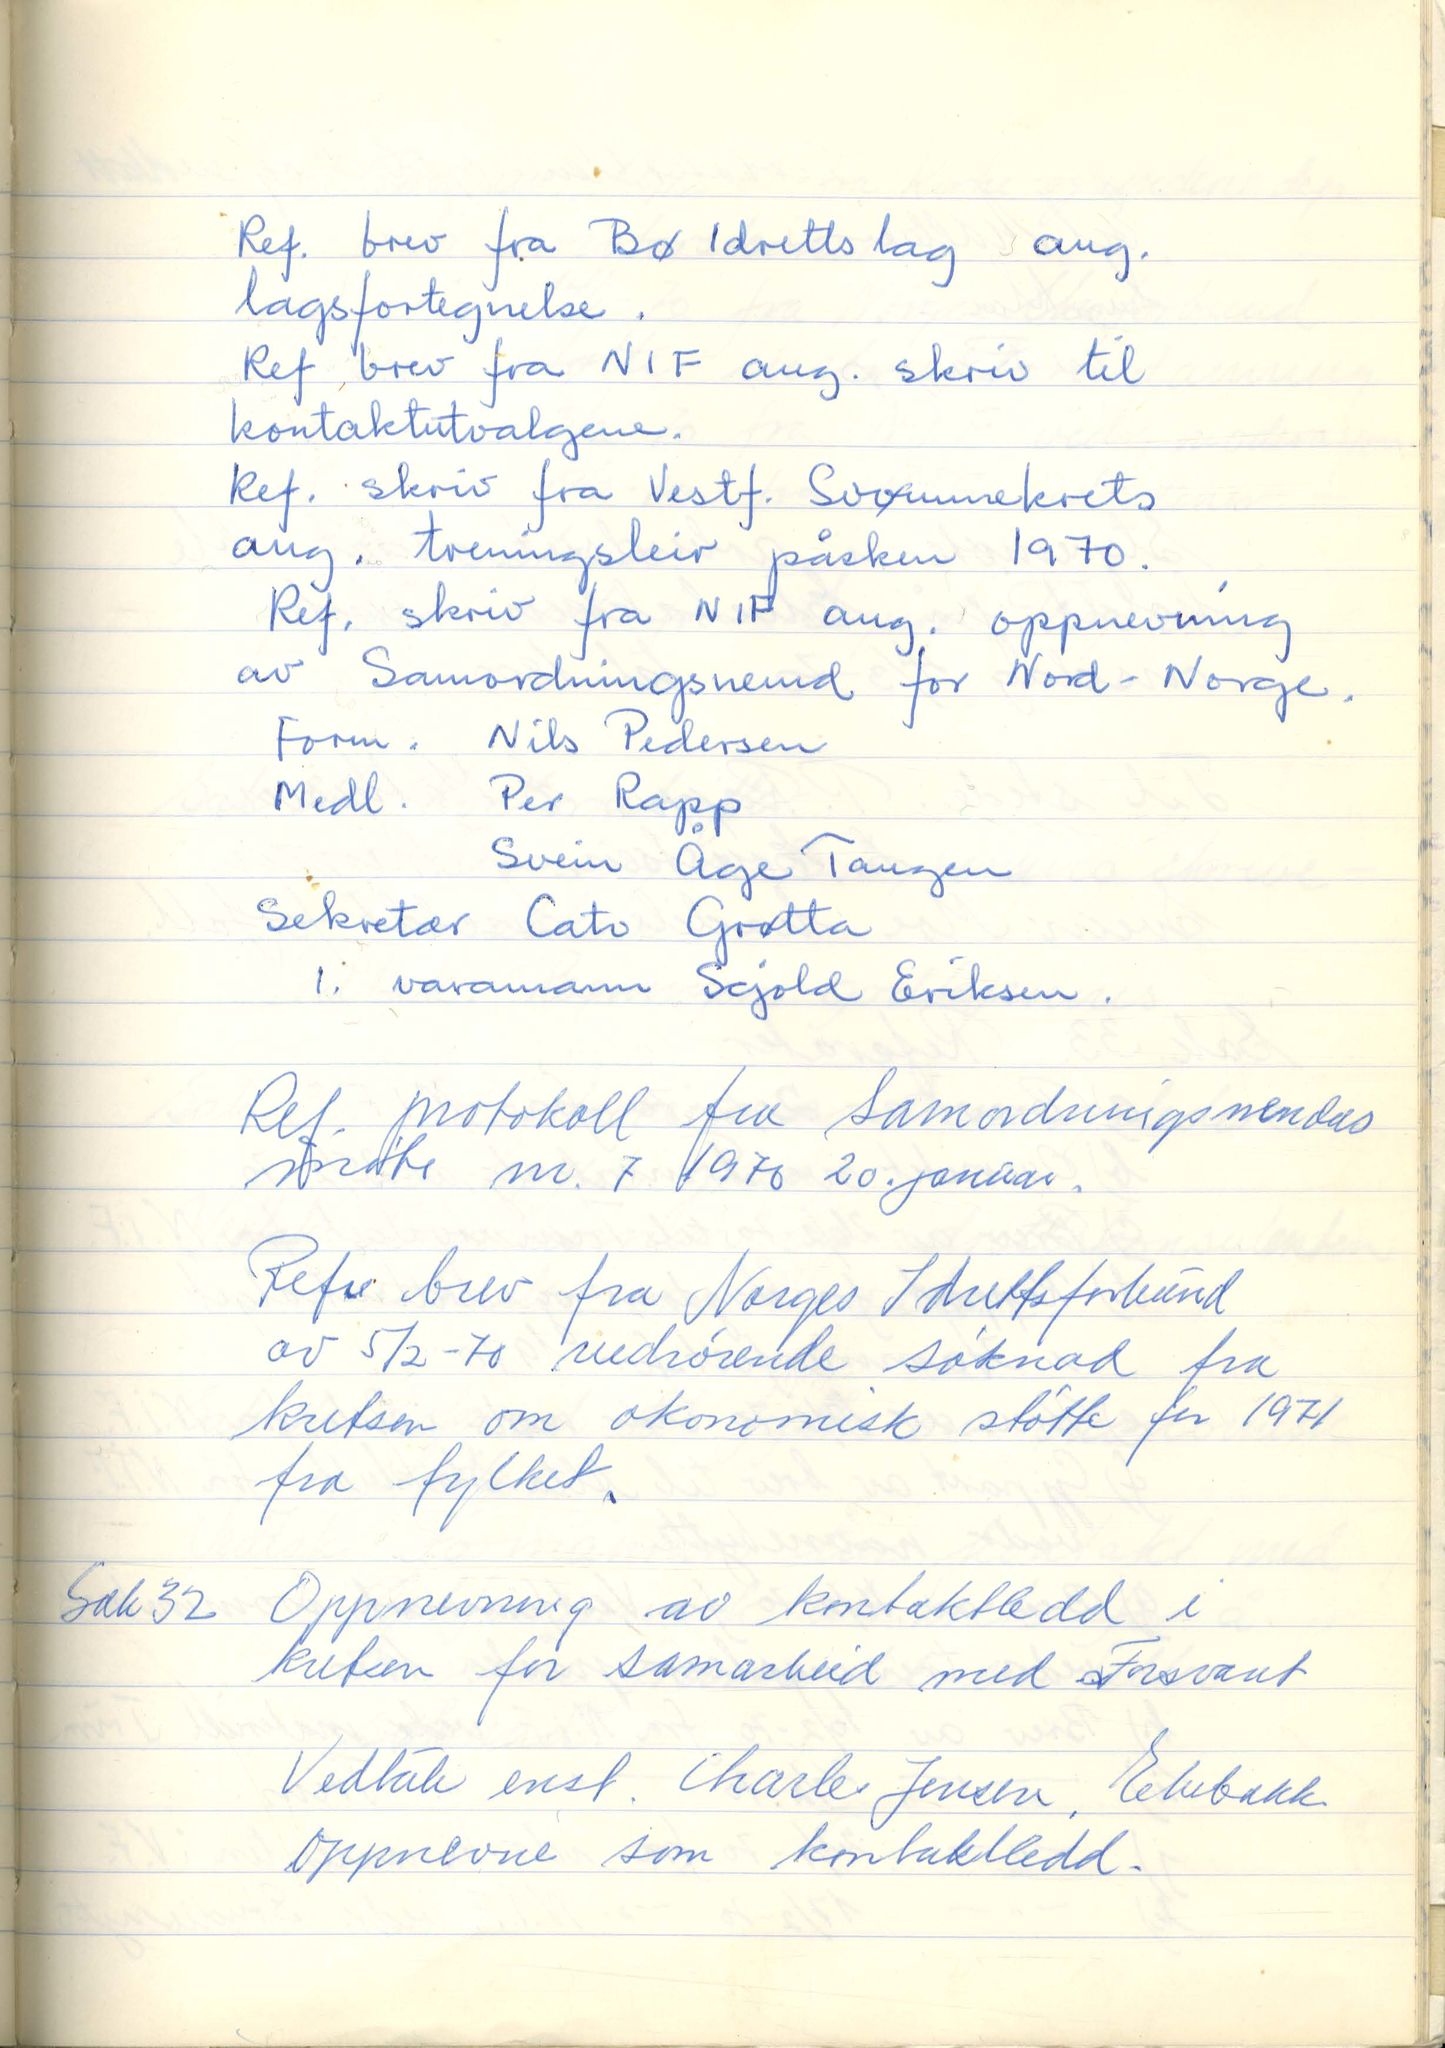 Ref. brev fra Bø Idrettslag ang.
lagsfortegnelse.
Ref brev fra NIF ang. skriv til
kontaktutvalgene.
Ref. skriv fra Vestf. Svømmekrets
ang. treningsleir påsken 1970.
Ref. skriv fra NIF ang. oppnevning
av Samordningsnemd for Nord-Norge.
Form. Nils Pedersen
Medl. Per Rapp
Svein Åge Tangen
Sekretær Cato Grøtta
1. varamann Skjold Eriksen.
Ref. protokoll fra Samordningsnendas
møte nr. 7 1970 20. januar.
brev fra Norges Idrettsforbund
av 5/2-70 vedrörende söknad fra
kretsen om økonomisk stötte for 1971
fra fylket.
Sak 32 Oppnevning av kontaktledd i
kretsen for samarbeid med Forsvaret
Vedtak enst. Charles Jensen,
oppnevne som kontaktledd.